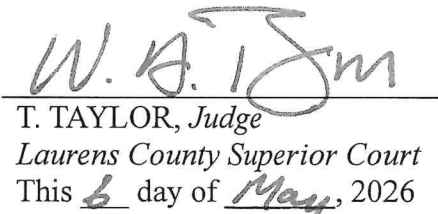 W. A. T
T. TAYLOR, Judge
Laurens County Superior Court
This 6 day of May, 2026